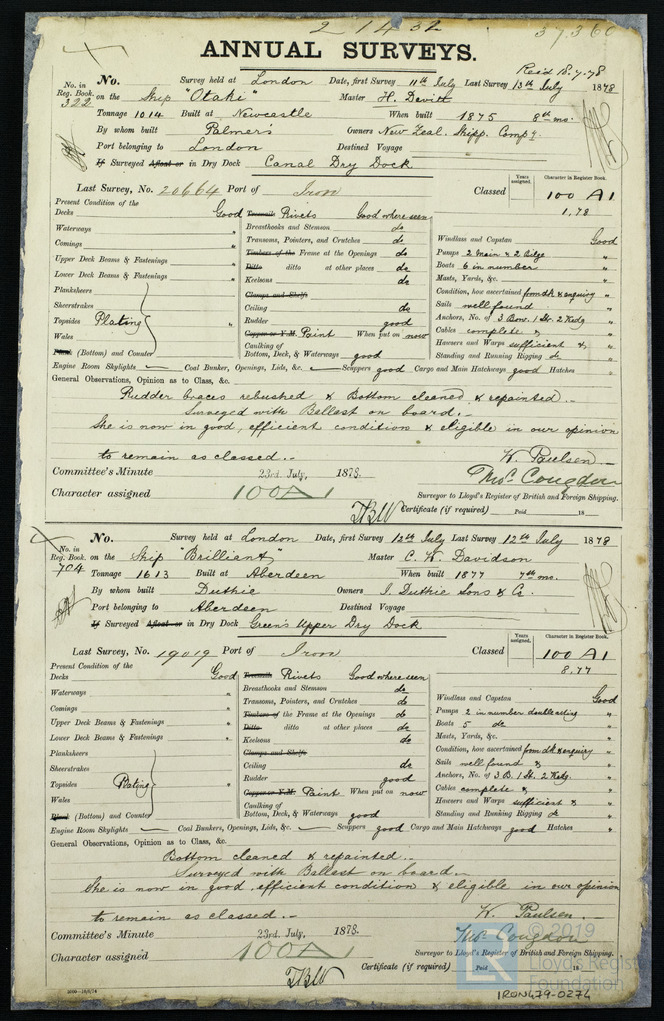 21432
37360
ANNUAL SURVEYS.
Rec'd 18.7.78
No. in Reg. Book. 322
No. Survey held at London Date, first Survey 11th July Last Survey 13th July 1878
on the Ship "Otaki" Master H. Devitt
Tonnage 1014 Built at Newcastle When built 1875 8th mo.
By whom built Palmer's Owners New Zeal. Shipp. Comp.y
Port belonging to London Destined Voyage
If Surveyed Afloat or in Dry Dock Canal Dry Dock
Last Survey, No. 20664 Port of Iron Classed Years assigned. Character in Register Book. 100 A1
1,78
Present Condition of the
Decks Good
Waterways "
Comings "
Upper Deck Beams & Fastenings "
Lower Deck Beams & Fastenings "
Planksheers
Sheerstrakes
Topsides Plating "
Wales
Plank (Bottom) and Counter
Treenails Rivets Good where seen
Breasthooks and Stemson do
Transoms, Pointers, and Crutches do
Timbers of the Frame at the Openings do
Ditto ditto at other places do
Keelsons do
Clamps and Shelfs
Ceiling do
Rudder good
Copper or Y.M. Paint When put on now
Caulking of
Bottom, Deck, & Waterways good
Windlass and Capstan Good
Pumps 2 Main & 2 Bilge "
Boats 6 in number "
Masts, Yards, &c. "
Condition, how ascertained from dk & enquiry
Sails well found "
Anchors, No. of 3 Bow. 1 St. 2 Kedg "
Cables complete & "
Hawsers and Warps sufficient & "
Standing and Running Rigging do "
Engine Room Skylights Coal Bunker, Openings, Lids, &c. Scuppers good Cargo and Main Hatchways good Hatches "
General Observations, Opinion as to Class, &c.
Rudder braces rebushed & Bottom cleaned & repainted.
Surveyed with Ballast on board.
She is now in good, efficient condition & eligible in our opinion
to remain as classed.
W. Paulsen
Committee's Minute 23rd July, 1878.
Thos. Congdon
Character assigned 100A1
Surveyor to Lloyd's Register of British and Foreign Shipping.
TBW Certificate (if required) Paid 18
No. in Reg. Book. 704
No. Survey held at London Date, first Survey 12th July Last Survey 12th July 1878
on the Ship "Brilliant" Master C. W. Davidson
Tonnage 1613 Built at Aberdeen When built 1877 7th mo.
By whom built Duthie Owners J. Duthie Sons & Co.
Port belonging to Aberdeen Destined Voyage
If Surveyed Afloat or in Dry Dock Green's Upper Dry Dock
Last Survey, No. 19019 Port of Iron Classed Years assigned. Character in Register Book. 100 A1
8,77
Present Condition of the
Decks Good
Waterways "
Comings "
Upper Deck Beams & Fastenings "
Lower Deck Beams & Fastenings "
Planksheers
Sheerstrakes
Topsides Plating "
Wales
Plank (Bottom) and Counter
Treenails Rivets Good where seen
Breasthooks and Stemson do
Transoms, Pointers, and Crutches do
Timbers of the Frame at the Openings do
Ditto ditto at other places do
Keelsons do
Clamps and Shelfs
Ceiling do
Rudder good
Copper or Y.M. Paint When put on now
Caulking of
Bottom, Deck, & Waterways good
Windlass and Capstan Good
Pumps 2 in number double acting "
Boats 5 do "
Masts, Yards, &c. "
Condition, how ascertained from dk & enquiry
Sails well found & "
Anchors, No. of 3 B. 1 St. 2 Kedg. "
Cables complete & "
Hawsers and Warps sufficient & "
Standing and Running Rigging do "
Engine Room Skylights Coal Bunkers, Openings, Lids, &c. Scuppers good Cargo and Main Hatchways good Hatches "
General Observations, Opinion as to Class, &c.
Bottom cleaned & repainted.
Surveyed with Ballast on board.
She is now in good, efficient condition & eligible in our opinion
to remain as classed.
W. Paulsen
Committee's Minute 23rd July, 1878.
Thos. Congdon
Character assigned 100A1
Surveyor to Lloyd's Register of British and Foreign Shipping.
TBW Certificate (if required) Paid 18
© 2019
Lloyd's Register
Foundation
IRON479-0274